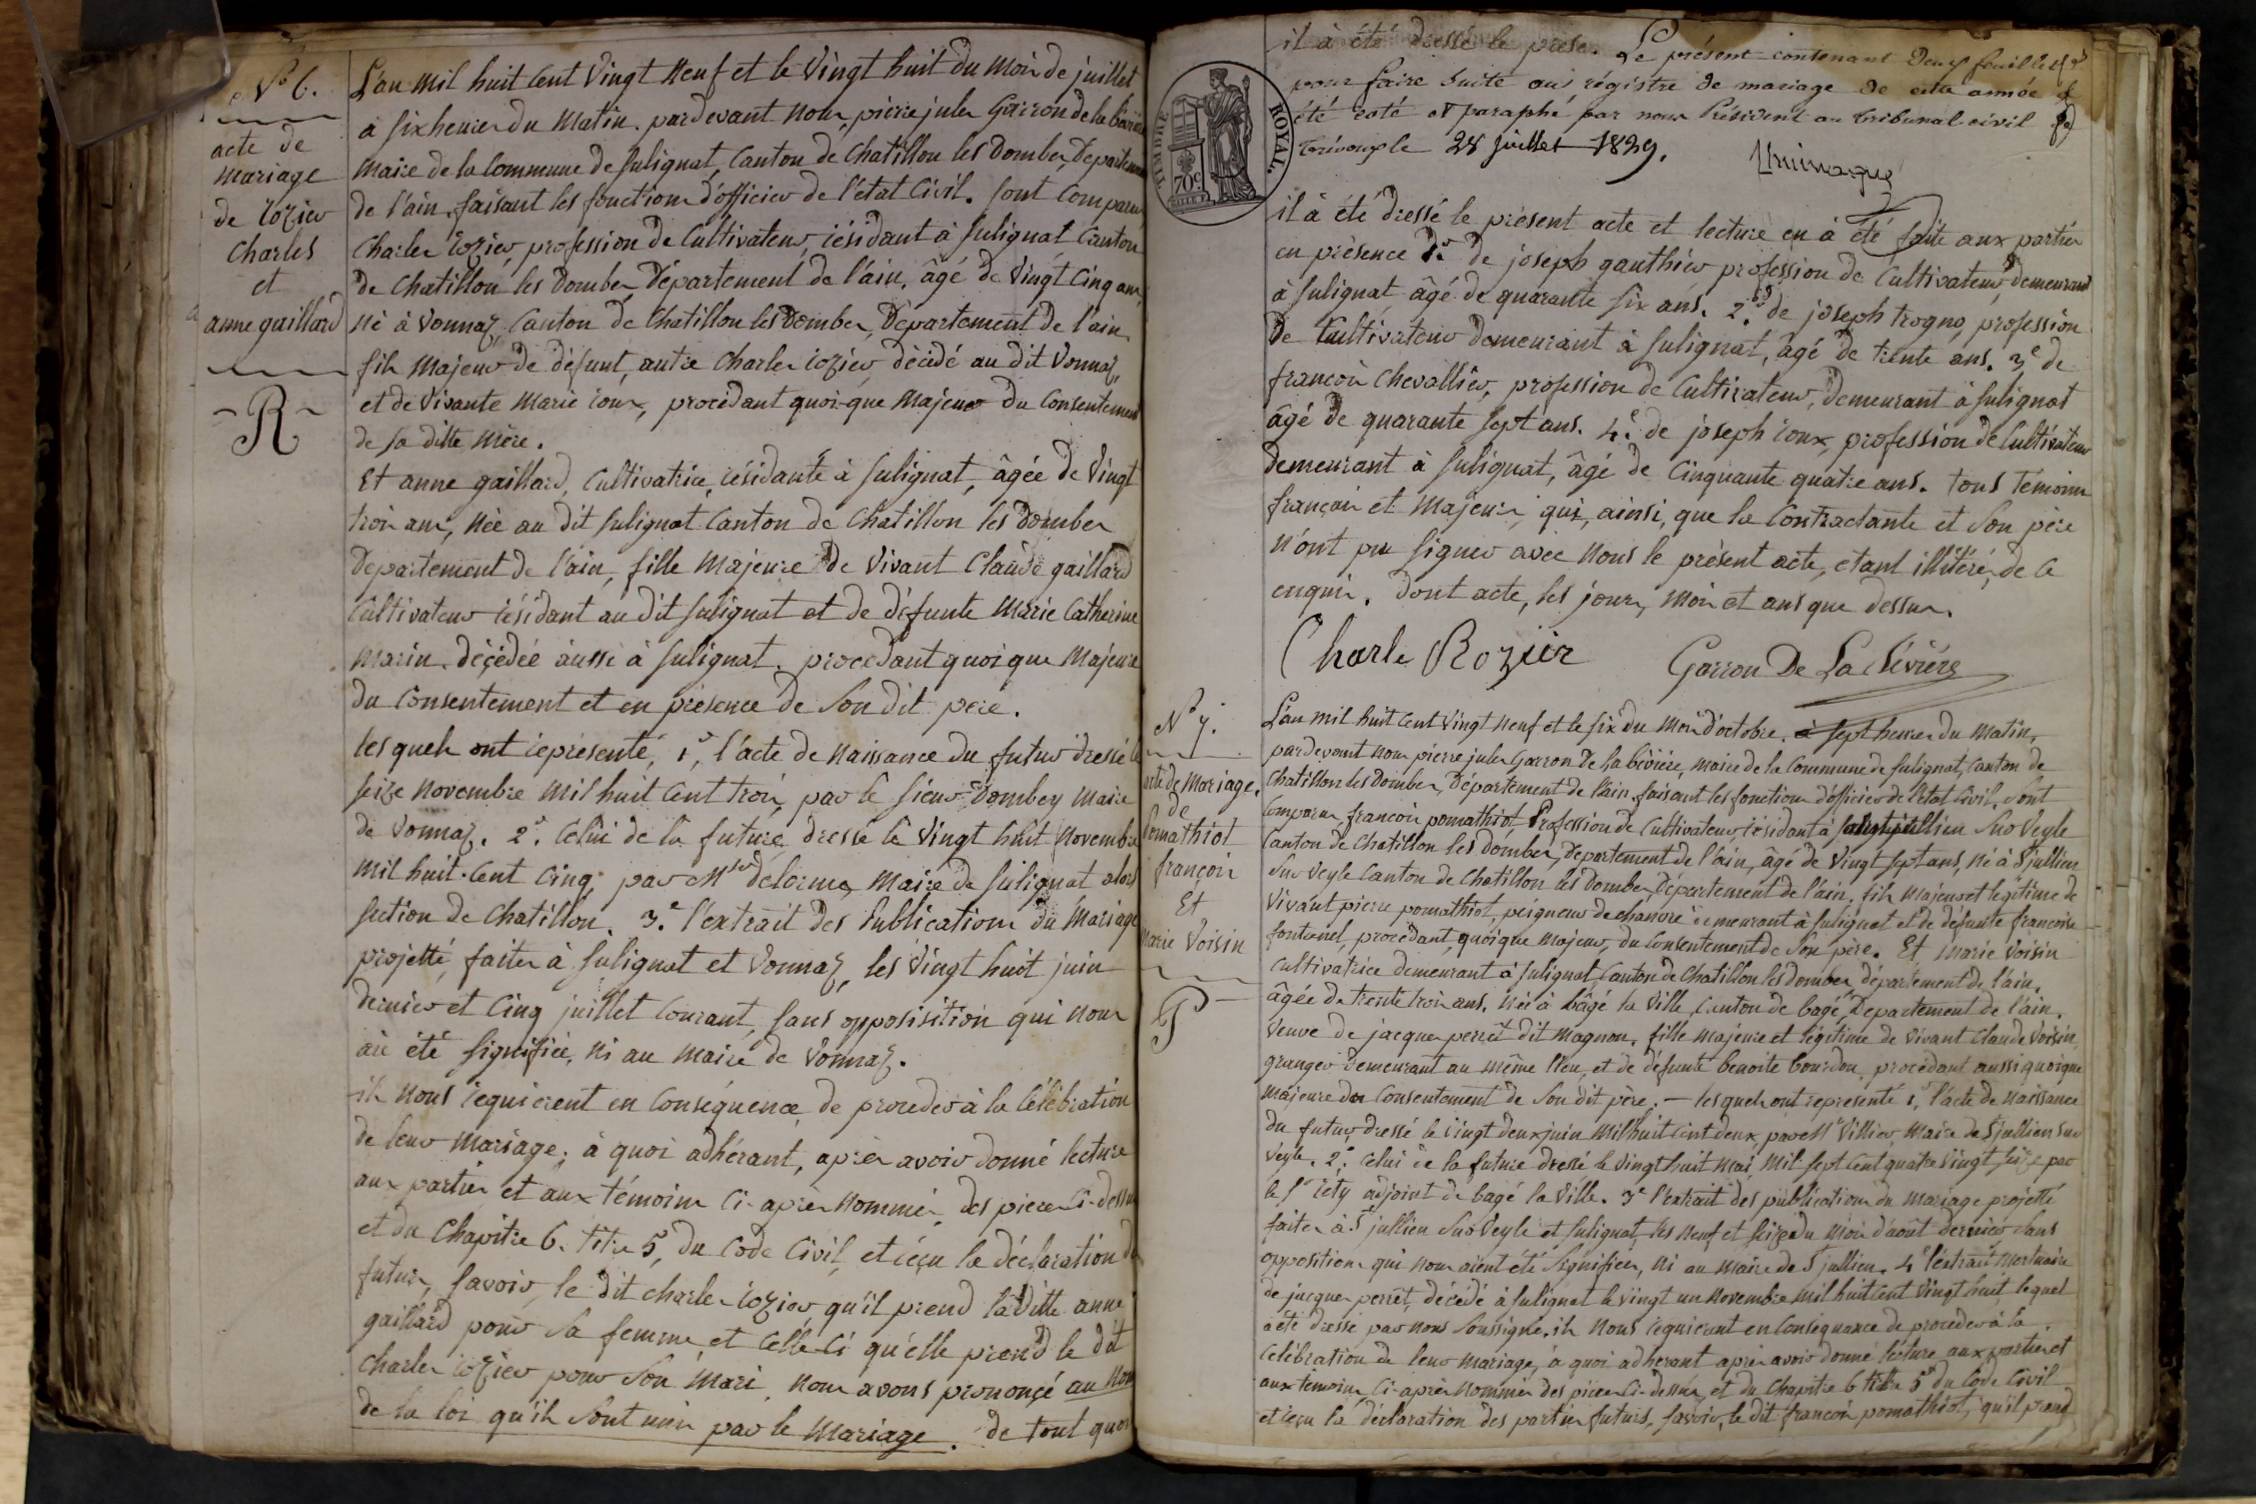 N° 6.
acte de
mariage
de rozier
Charles
et
anne gaillard
R
L'an mil huit cent vingt neuf et le vingt huit du mois de juillet
à six heures du matin. pardevant nous, pierre jules Garron de la bévière
maire de la commune de sulignat, canton de chatillon les dombes, departement
de l'ain, faisant les fonctions d'officier de l'état civil. sont comparus
charles rozier, profession de cultivateur, résidant à sulignat canton
de chatillon les dombes Département de l'ain, âgé de vingt cinq ans,
né à vonnaz, canton de chatillon les dombes, Département de l'ain,
fils majeur de défunt, autre charles rozier, décédé au dit vonnaz,
et de vivante marie roux, procédant quoique majeur du consentement
de sa ditte mère.
Et anne gaillard, cultivatrice, résidante à sulignat, âgée de vingt
trois ans, née au dit sulignat canton de chatillon les dombes
Département de l'ain, fille majeure de vivant claude gaillard
cultivateur résidant au dit sulignat et de défunte marie catherine
marin, décédée aussi à sulignat. procedant quoique majeure
du consentement et en présence de son dit père.
lesquels ont représenté, 1°, l'acte de naissance du futur dressé le
seize novembre mil huit cent trois, par le sieur dombey maire
de vonnaz. 2°. celui de la future dressé le vingt huit novembre
mil huit cent cinq, par Mr delorme, maire de sulignat alors
section de chatillon. 3.e l'extrait des publications du mariage
projetté, faites à sulignat et vonnaz, les vingt huit juin
dernier et cinq juillet courant, sans opposisition qui nous
aie été signifiée, ni au maire de vonnaz.
ils nous requierent en conséquence de proceder à la célébration
de leur mariage; à quoi adhérant, après avoir donné lecture
aux parties et aux témoins ci-après nommés, des pieces ci-dessus
et du chapitre 6. titre 5, du code civil, et reçu la déclaration des
futurs, savoir, le dit charles rozier qu'il prend la ditte anne
gaillard pour sa femme, et celle-ci qu'elle prend le dit
charles rozier pour son mari, nous avons prononçé au nom
de la loi qu'ils sont unis par le mariage. de tout quoi
il à été dressé le prése.
Le présent contenant deux feuillets
pour faire suite aux régistre de mariage de cette année a
été coté et paraphé par nous Président au tribunal civil de
Trévoux le 28 juillet 1829.
TIMBRE ROYAL.
70c
il à été dressé le présent acte et lecture en à été faite aux parties
en présence 1.° de joseph gauthier profession de cultivateur, demeurant
à sulignat, âgé de quarante six ans. 2.° de joseph trogno, profession
de cultivateur demeurant à sulignat, âgé de trente ans. 3.e de
françois chevallier, profession de cultivateur, demeurant à sulignat
âgé de quarante sept ans. 4.e de joseph roux, profession de cultivateur
demeurant à sulignat, âgé de cinquante quatre ans. tous témoins
françois et majeurs, qui, ainsi, que la contractante et son père
n'ont pu signer avec nous le présent acte, etant illitéré, de ce
enquis. Dont acte, les jour, mois et ans que dessus.
Charle Rozier Garron De La Bévière
N° 7.
acte de mariage.
de
Pomathiot
françois
Et
marie voisin
P
L'an mil huit cent vingt neuf et le six du mois d'octobre, à sept heures du matin,
pardevant nous pierre jules Garron de la bévière, maire de la commune de sulignat, canton de
chatillon les dombes, Département de l'ain, faisant les fonctions d'officier de l'état civil, sont
comparus, françois pomathiot, Profession de cultivateur résidant à St jullien sur veyle
canton de chatillon les dombes, Département de l'ain, âgé de vingt sept ans, né à St jullien
sur veyle canton de chatillon les dombes, Département de l'ain, fils majeur et légitime de
vivant pierre pomathiot, peigneur de chanvre demeurant à sulignat et de défunte francoise
fontanel, procédant, quoique majeur, du consentement de son père. Et marie voisin
cultivatrice demeurant à sulignat, canton de chatillon les dombes, département de l'ain,
âgée de trente trois ans, née à bâgé la ville, canton de bagé, Département de l'ain.
veuve de jacques perret dit magnon, fille majeure et légitime de vivant claude voisin,
granger demeurant au même lieu, et de défunte benoite bourdon, procédant aussi quoique
majeure du consentement de son dit père. — lesquels ont représenté 1°, l'acte de naissance
du futur dressé le vingt deux juin mil huit cent deux, par Mr villier, maire de St jullien sur
veyle. 2.° celui de la future dressé le vingt huit mai mil sept cent quatre vingt seize par
le Sr rety adjoint de bagé la ville. 3.e l'extrait des publications du mariage projetté
faites à St jullien sur veyle et sulignat, les neuf et seize du mois d'août dernier sans
opposition qui nous aient été signifiées, ni au maire de St jullien. 4.e l'extrait mortuaire
de jacques perret, décédé à sulignat le vingt un novembre mil huit cent vingt huit, lequel
a été dressé par nous soussigné. ils nous requierent en consequance de proceder à la
célébration de leur mariage, à quoi adherant après avoir donné lecture aux parties et
aux temoins ci-après nommés des pieces ci-dessus, et du chapitre 6 titre 5 du code civil
et reçu la déclaration des parties futurs, savoir, le dit françois pomathiot, qu'il prend